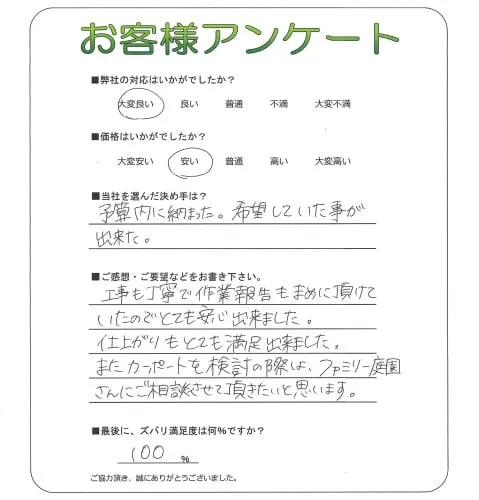 お客様アンケート
■弊社の対応はいかがでしたか？
大変良い 良い 普通 不満 大変不満
■価格はいかがでしたか？
大変安い 安い 普通 高い 大変高い
■当社を選んだ決め手は？
予算内に納まった。希望していた事が
出来た。
■ご感想・ご要望などをお書き下さい。
工事も丁寧で作業報告もまめに頂けて
いたのでとても安心出来ました。
仕上がりもとても満足出来ました。
またカーポートを検討の際は、ファミリー庭園
さんにご相談させて頂きたいと思います。
■最後に、ズバリ満足度は何％ですか？
100 ％
ご協力頂き、誠にありがとうございました。